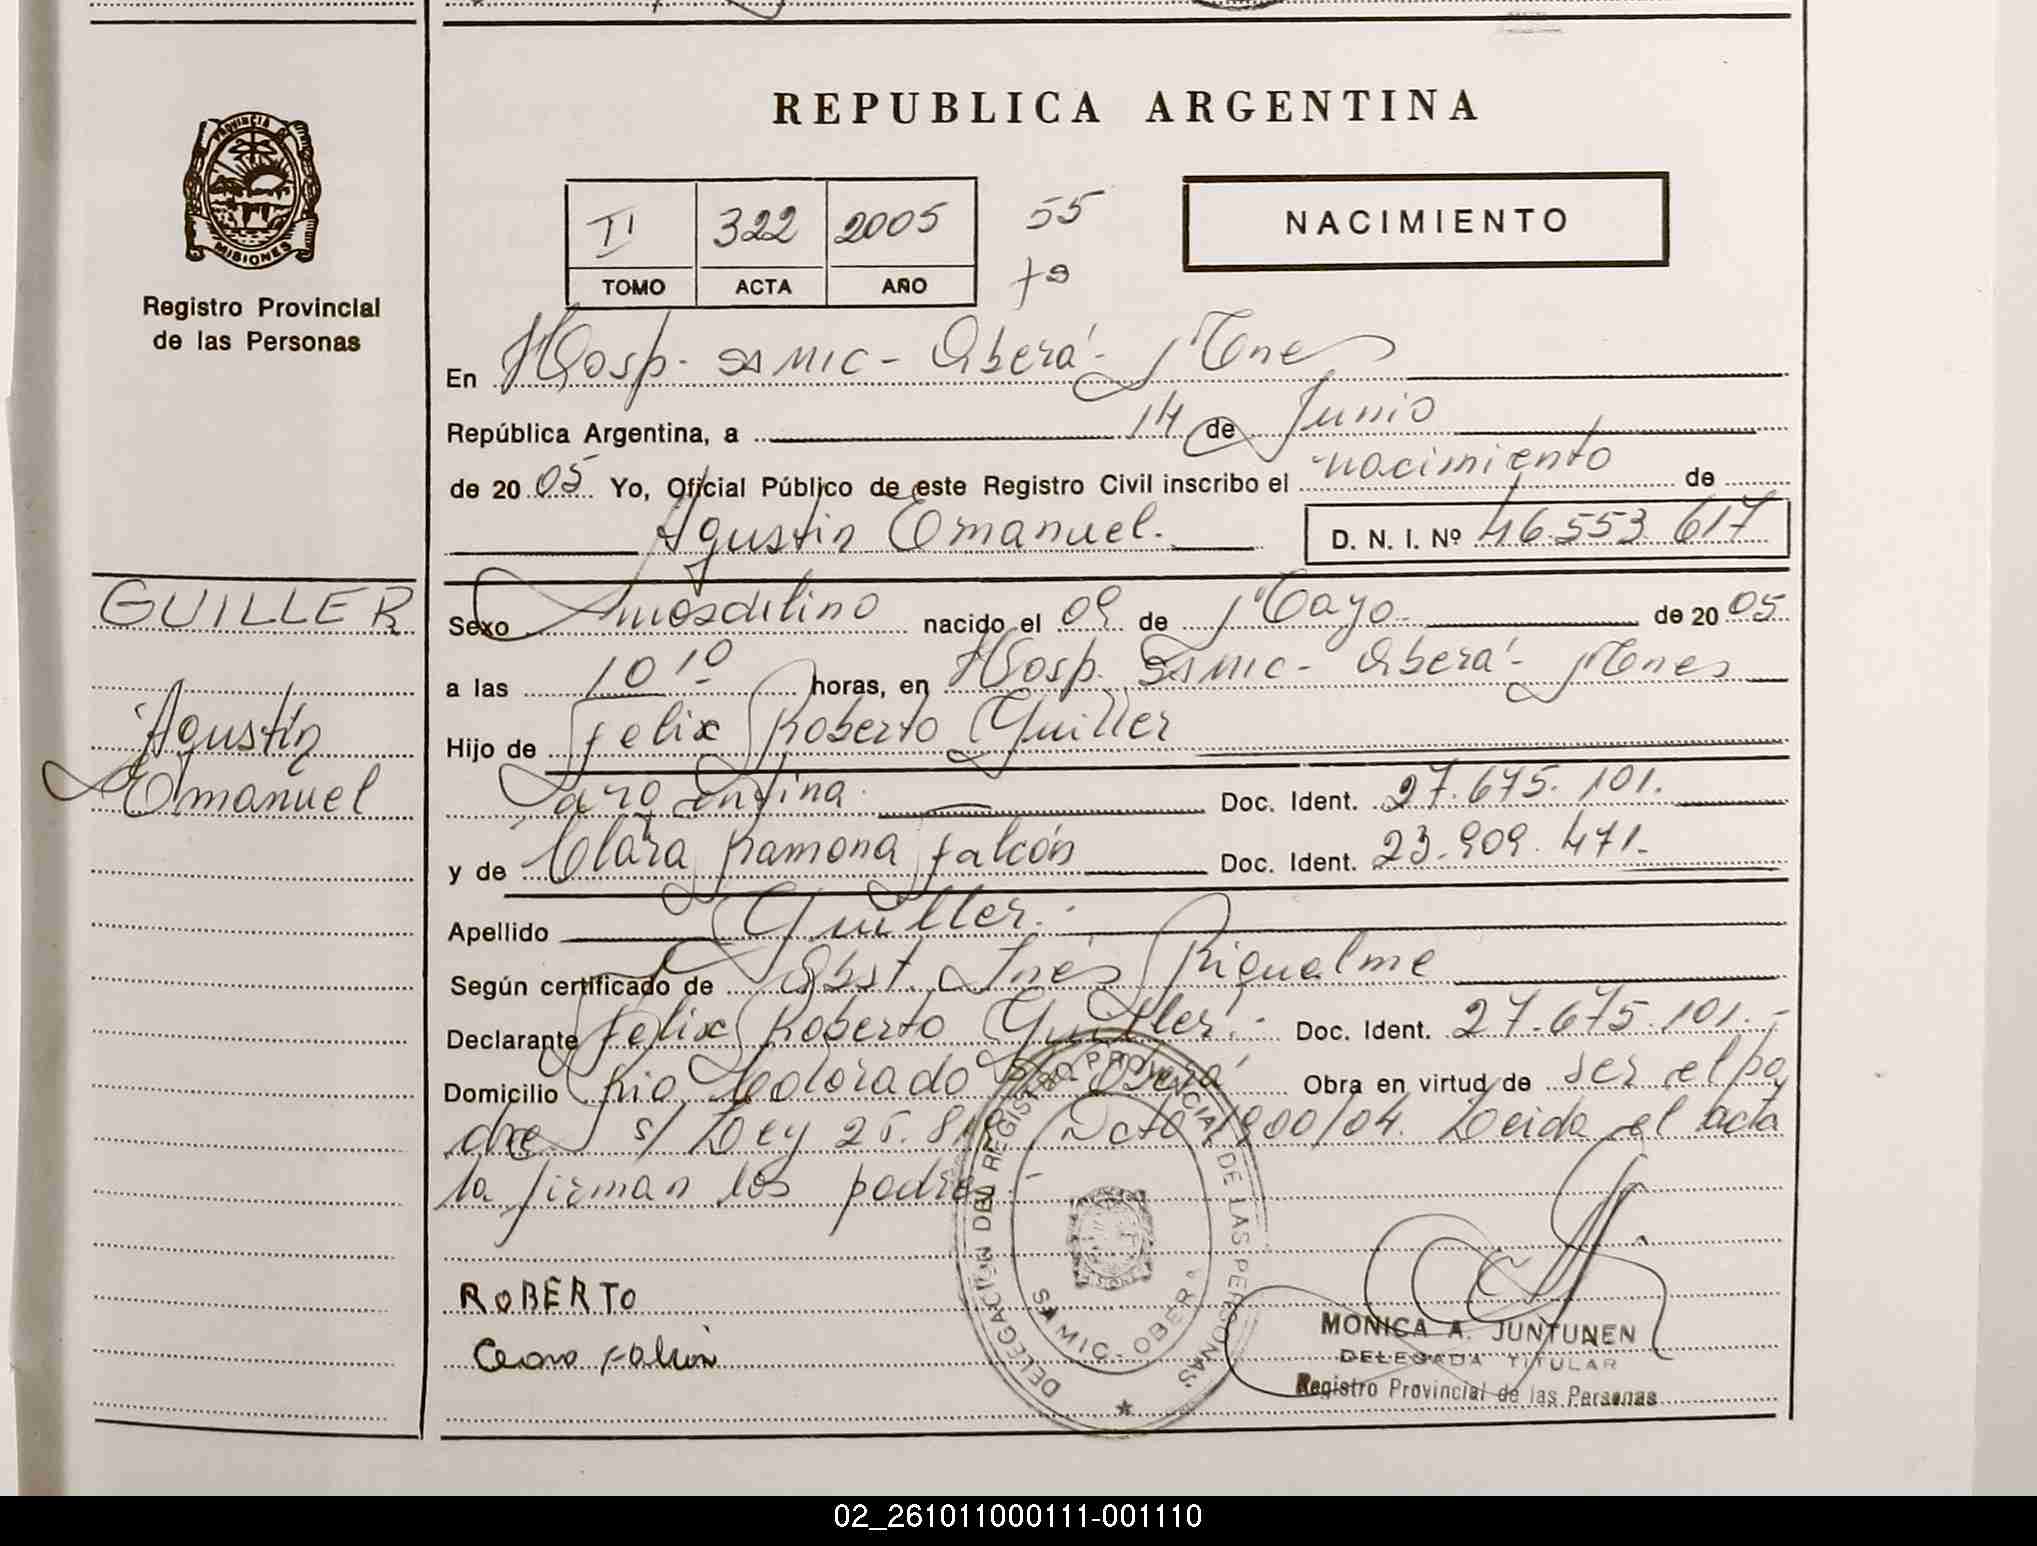 REPUBLICA ARGENTINA
PROVINCIA DE
MISIONES
Registro Provincial
de las Personas
II 322 2005 55
TOMO ACTA AÑO
Fº
NACIMIENTO
En Hosp. SAMIC - Oberá - Mnes
República Argentina, a 14 de Junio
de 20 05 Yo, Oficial Público de este Registro Civil inscribo el nacimiento de
Agustín Emanuel. D. N. I. Nº 46.553.617
GUILLER
Agustín
Emanuel
Sexo masculino nacido el 09 de Mayo de 20 05
a las 10 10 horas, en Hosp. SAMIC - Oberá - Mnes
Hijo de Felix Roberto Guiller
argentina Doc. Ident. 27.675.101.
y de Clara Ramona Falcón Doc. Ident. 23.909.471.
Apellido Guiller.
Según certificado de Obst. Inés Riquelme
Declarante Felix Roberto Guiller. Doc. Ident. 27.675.101.
Domicilio Rio Colorado Oberá Obra en virtud de ser el pa
dre s/ Ley Dcto 1900/04. Leida el acta
la firman los padres
ROBERTO
Clara Falcón
DELEGACIÓN DEL REGISTRO PROVINCIAL DE LAS PERSONAS
SAMIC - OBERA
MONICA A. JUNTUNEN
DELEGADA TITULAR
Registro Provincial de las Personas
02_261011000111-001110